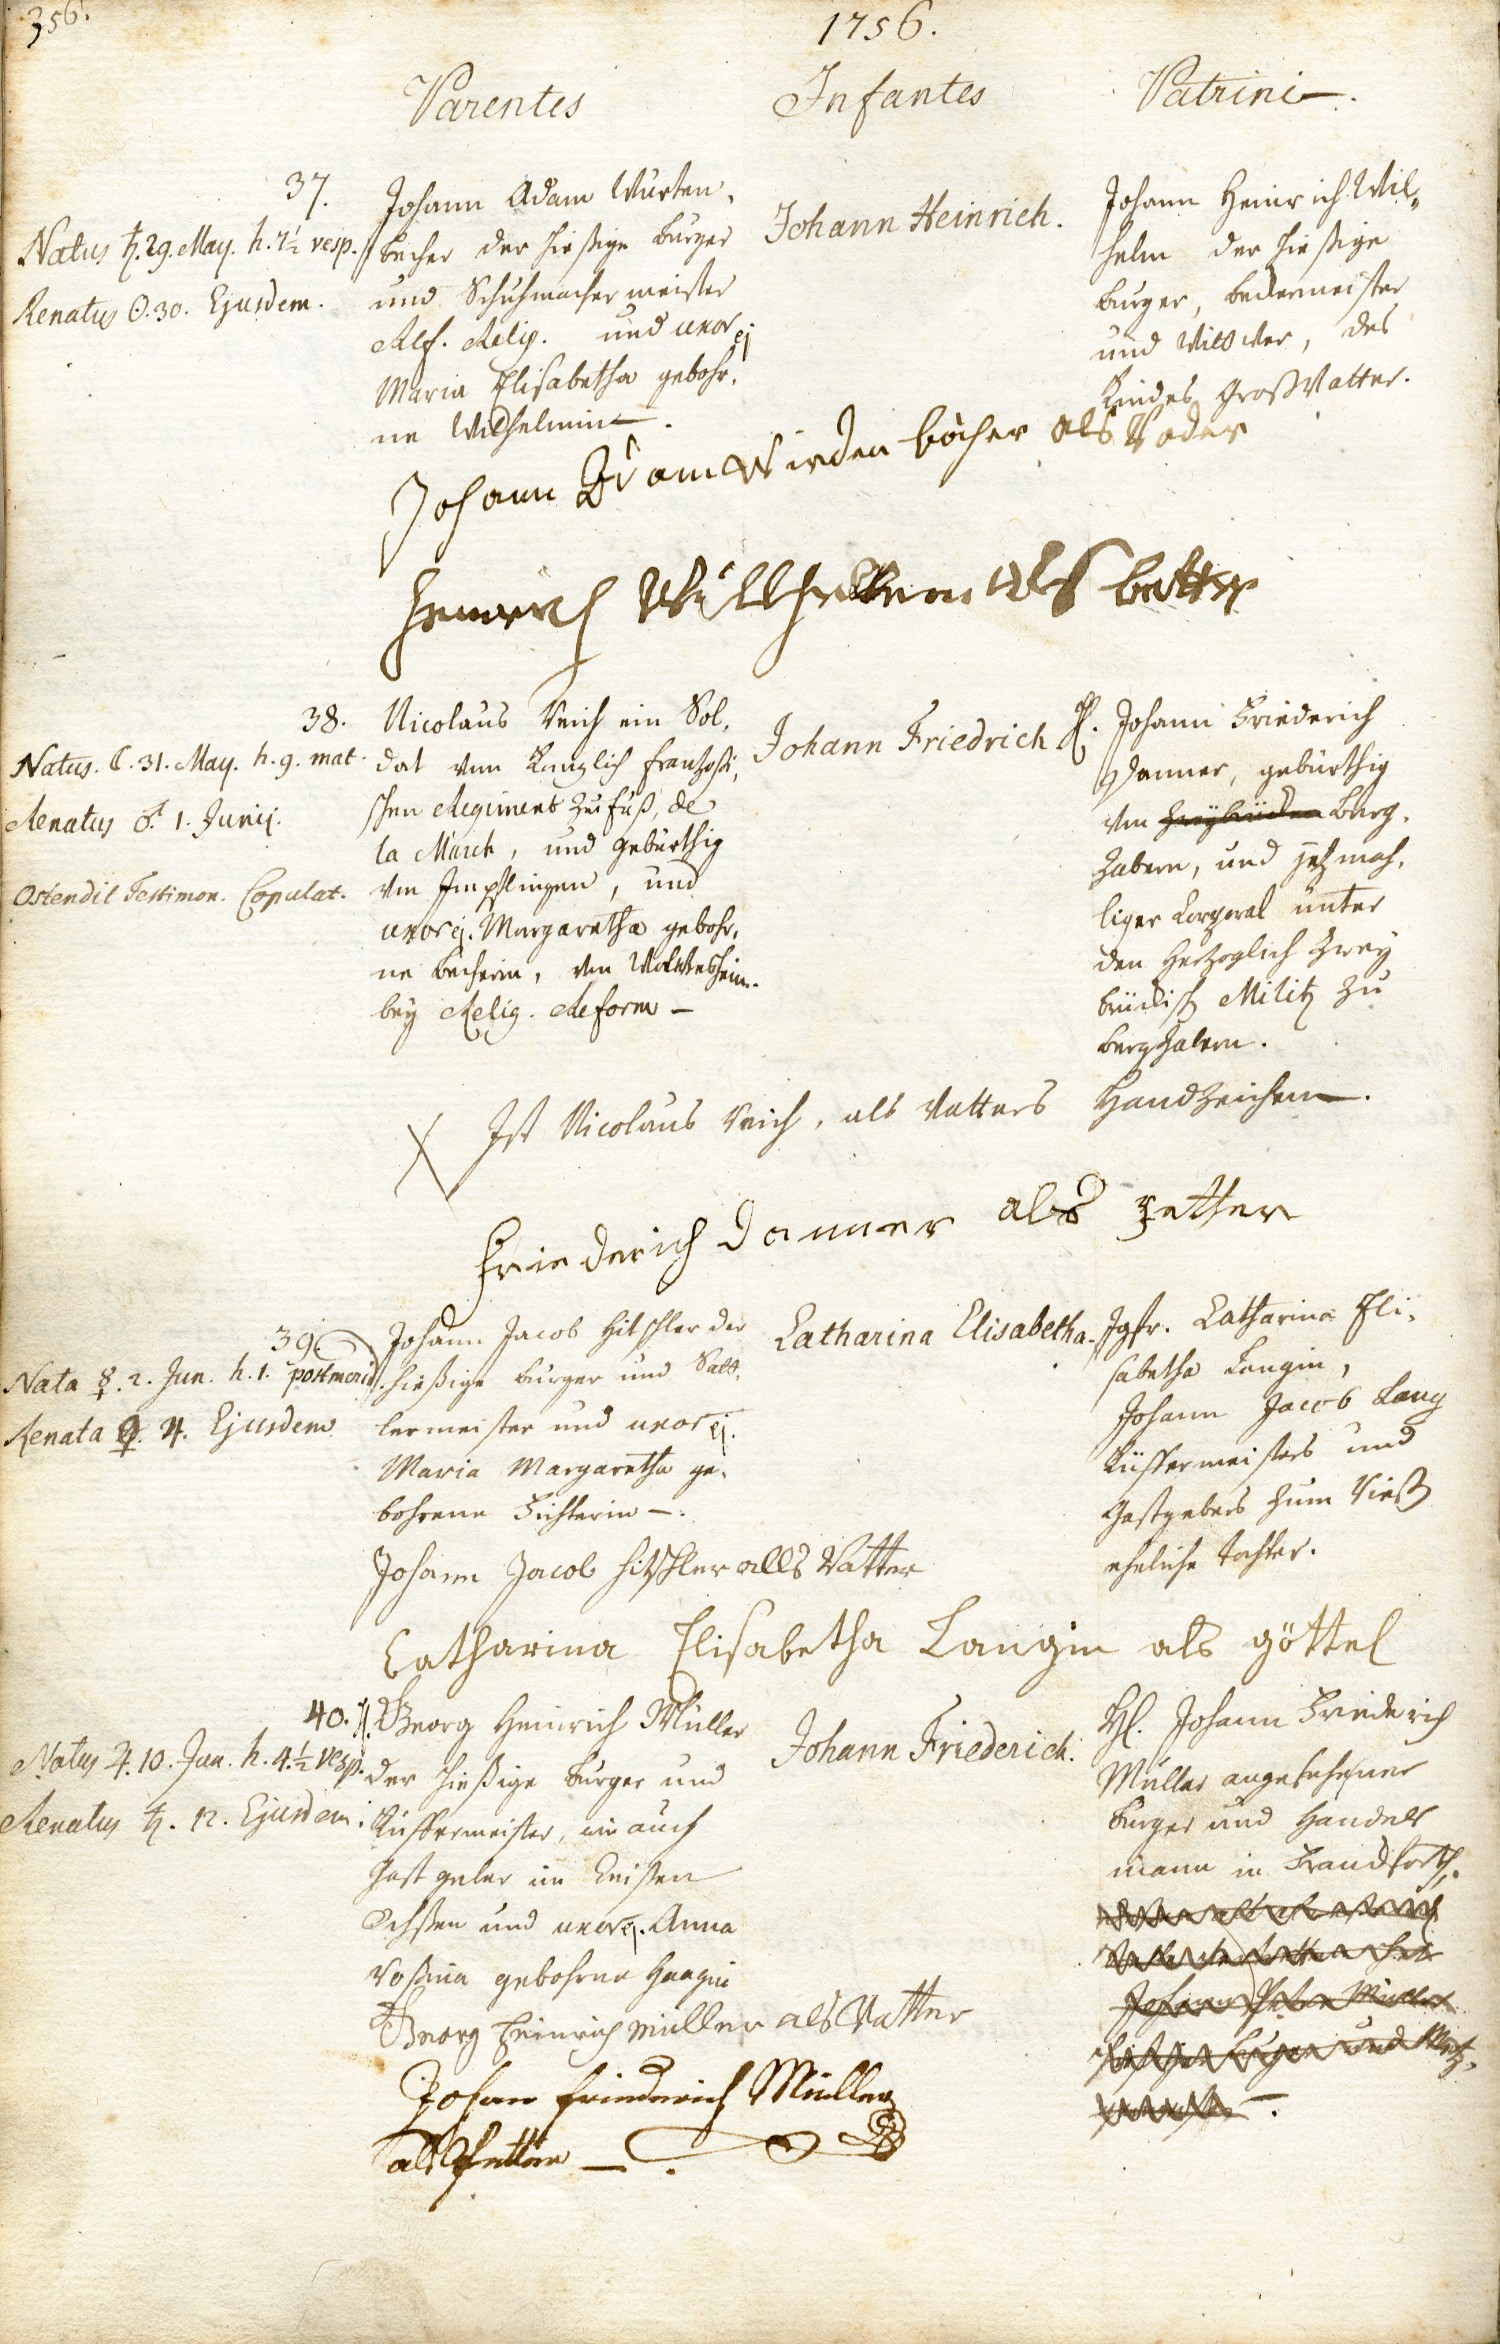 356.
1756.
Parentes
Infantes
Patrini.
37.
Natus ♄. 29. May. h. 7½ vesp.
Renatus ☉. 30. Ejusdem.
Johann Adam Wurten,
becher der hießige burger
und Schuhmachermeister
Ref. Relig. und uxor ej
Maria Elisabetha gebohr,
ne Wilhelmin.
Johann Heinrich.
Johann Heinrich Wil„
helm der hießige
burger, beckermeister
und Wittwer, des
Kindes Großvatter.
Johann Adam Wirdenbächer als Vader
Heinrich Willhelem als better
38.
Natus. ☾. 31. May. h. 9. mat.
Renatus ♂. 1. Junij.
Ostendit Testimon. Copulat.
Nicolaus Veich ein Sol,
dat vom Königlich Frantzösi,
schen Regiment zu fuß, de
la March, und gebürthig
von Impflingen, und
uxor ej. Margaretha gebohr,
ne becherin, von Wolmesheim.
bey Relig. Reform –
Johann Friedrich
H. Johann Friederich
Danner, gebürthig
von Berg,
zabern, und jetzmah,
liger Corporal unter
den Hertzoglich Zwey
brückisch Militz zu
bergzabern.
X Ist Nicolaus Veich, als Vatters Handzeichen.
Friederich Danner als Petter
39.
Nata ☿. 2. Jun. h. 1. postmerid.
Renata ♀. 4. Ejusdem
Johann Jacob Hitschler der
hießige burger und Satt,
lermeister und uxor ej.
Maria Margaretha ge,
bohrene Fichterin –.
Catharina Elisabetha.
Jgfr. Catharina Eli,
sabetha Langin,
Johann Jacob Lang
Küffermeisters und
Gastgebers zum
eheliche tochter.
Johann Jacob Hitschler alls Vatter
Catharina Elisabetha Langin als göttel
40.
Natus ♃. 10. Jun. h. 4½ vesp.
Renatus ♄. 12. Ejusdem.
H. Georg Heinrich Müller
der hießige burger und
Küffermeister, wie auch
Gastgeber im
Ochßen und uxor ej. Anna
Roßina gebohrne Haagin
Johann Friederich.
H. Johann Friederich
Müller angesehener
burger und Handels
mann in Franckforth.
Johann Peter Müller
burger und Metz,
Georg Heinrich Müller als Vatter
Johan Friederich Müller
als Petter –